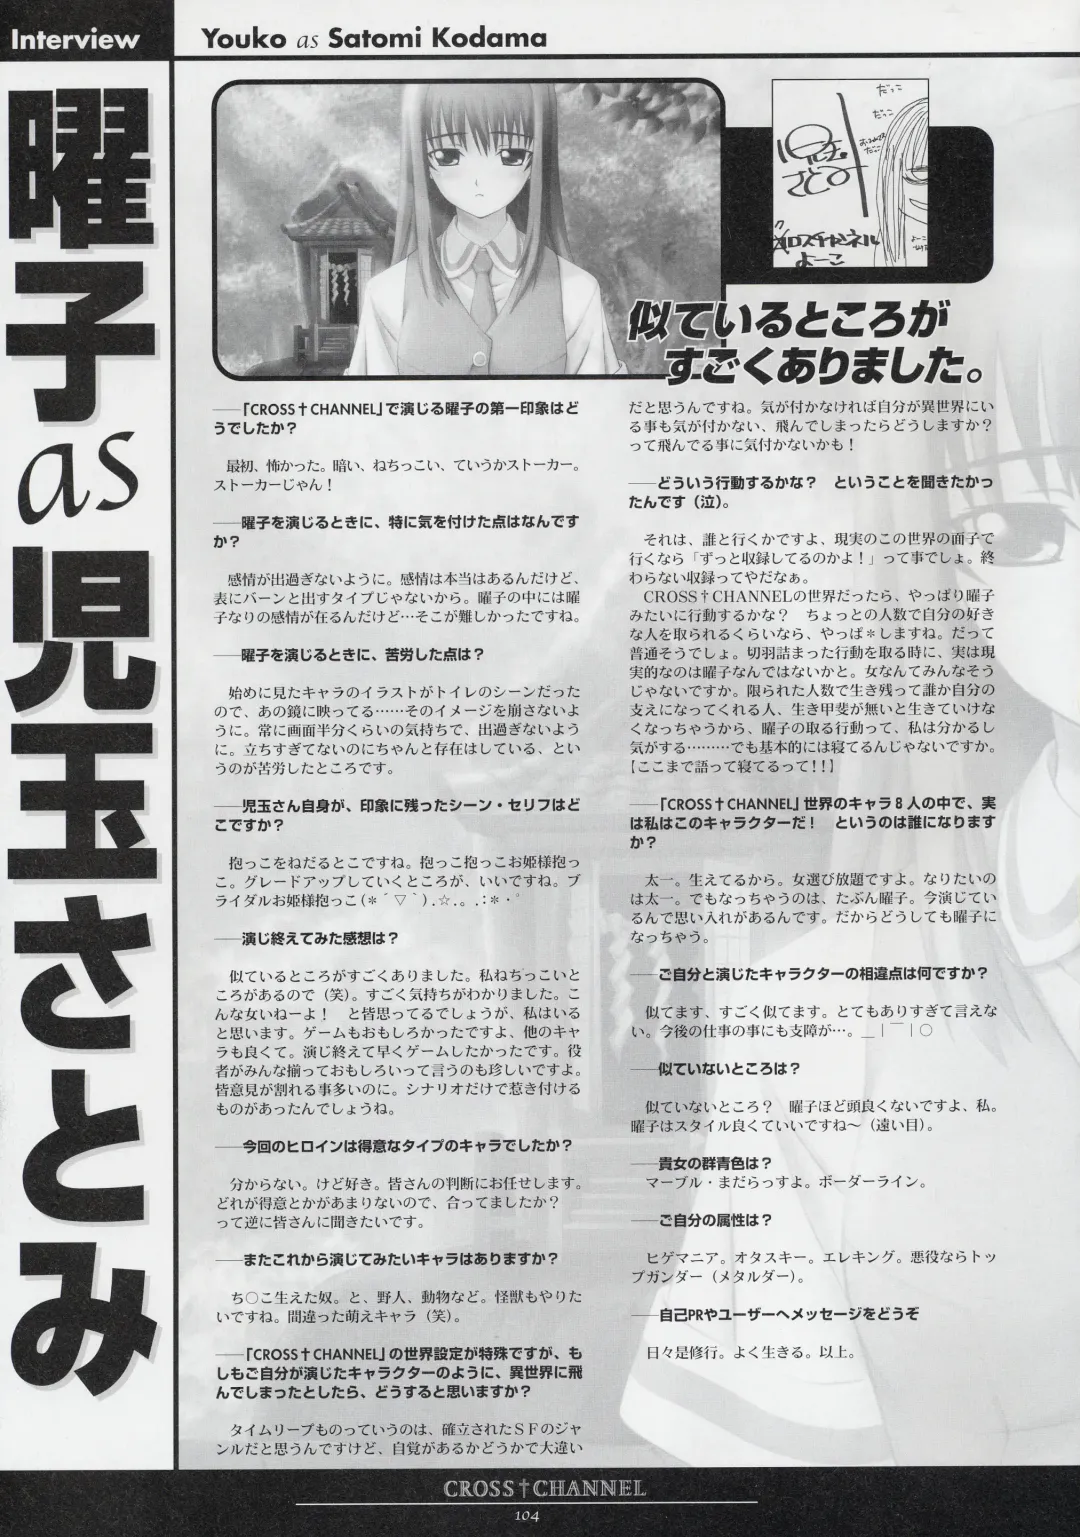 Interview
Youko as Satomi Kodama
曜子 as 児玉さとみ
だっこ
だっこ
だっこ
児玉
さとみ
クロスチャンネル
よーこ
似ているところが
すごくありました。
──「CROSS†CHANNEL」で演じる曜子の第一印象はど
うでしたか？
最初、怖かった。暗い、ねちっこい、ていうかストーカー。
ストーカーじゃん！
──曜子を演じるときに、特に気を付けた点はなんです
か？
感情が出過ぎないように。感情は本当はあるんだけど、
表にバーンと出すタイプじゃないから。曜子の中には曜
子なりの感情が在るんだけど…そこが難しかったですね。
──曜子を演じるときに、苦労した点は？
始めに見たキャラのイラストがトイレのシーンだった
ので、あの鏡に映ってる……そのイメージを崩さないよ
うに。常に画面半分くらいの気持ちで、出過ぎないよう
に。立ちすぎてないのにちゃんと存在はしている、とい
うのが苦労したところです。
──児玉さん自身が、印象に残ったシーン・セリフはど
こですか？
抱っこをねだるとこですね。抱っこ抱っこお姫様抱っ
こ。グレードアップしていくところが、いいですね。ブ
ライダルお姫様抱っこ(＊´▽｀).☆.。.:＊・゜
──演じ終えてみた感想は？
似ているところがすごくありました。私ねちっこいと
ころがあるので（笑）。すごく気持ちがわかりました。こ
んな女いねーよ！　と皆思ってるでしょうが、私はいる
と思います。ゲームもおもしろかったですよ、他のキャ
ラも良くて。演じ終えて早くゲームしたかったです。役
者がみんな揃っておもしろいって言うのも珍しいですよ。
皆意見が割れる事多いのに。シナリオだけで惹き付ける
ものがあったんでしょうね。
──今回のヒロインは得意なタイプのキャラでしたか？
分からない。けど好き。皆さんの判断にお任せします。
どれが得意とかがあまりないので、合ってましたか？
って逆に皆さんに聞きたいです。
──またこれから演じてみたいキャラはありますか？
ち○こ生えた奴。と、野人、動物など。怪獣もやりた
いですね。間違った萌えキャラ（笑）。
──「CROSS†CHANNEL」の世界設定が特殊ですが、も
しもご自分が演じたキャラクターのように、異世界に飛
んでしまったとしたら、どうすると思いますか？
タイムリープものっていうのは、確立されたＳＦのジャ
ンルだと思うんですけど、自覚があるかどうかで大違い
だと思うんですね。気が付かなければ自分が異世界にい
る事も気が付かない、飛んでしまったらどうしますか？
って飛んでる事に気付かないかも！
──どういう行動するかな？　ということを聞きたかっ
たんです（泣）。
それは、誰と行くかですよ、現実のこの世界の面子で
行くなら「ずっと収録してるのかよ！」って事でしょ。終
わらない収録ってやだなぁ。
CROSS†CHANNELの世界だったら、やっぱり曜子
みたいに行動するかな？　ちょっとの人数で自分の好き
な人を取られるくらいなら、やっぱ＊しますね。だって
普通そうでしょ。切羽詰まった行動を取る時に、実は現
実的なのは曜子なんではないかと。女なんてみんなそう
じゃないですか。限られた人数で生き残って誰か自分の
支えになってくれる人、生き甲斐が無いと生きていけな
くなっちゃうから、曜子の取る行動って、私は分かるし
気がする………でも基本的には寝てるんじゃないですか。
【ここまで語って寝てるって！！】
──「CROSS†CHANNEL」世界のキャラ８人の中で、実
は私はこのキャラクターだ！　というのは誰になります
か？
太一。生えてるから。女選び放題ですよ。なりたいの
は太一。でもなっちゃうのは、たぶん曜子。今演じてい
るんで思い入れがあるんです。だからどうしても曜子に
なっちゃう。
──ご自分と演じたキャラクターの相違点は何ですか？
似てます、すごく似てます。とてもありすぎて言えな
い。今後の仕事の事にも支障が…。＿｜￣｜○
──似ていないところは？
似ていないところ？　曜子ほど頭良くないですよ、私。
曜子はスタイル良くていいですね〜（遠い目）。
──貴女の群青色は？
マーブル・まだらっすよ。ボーダーライン。
──ご自分の属性は？
ヒゲマニア。オタスキー。エレキング。悪役ならトッ
プガンダー（メタルダー）。
──自己PRやユーザーへメッセージをどうぞ
日々是修行。よく生きる。以上。
CROSS†CHANNEL
104